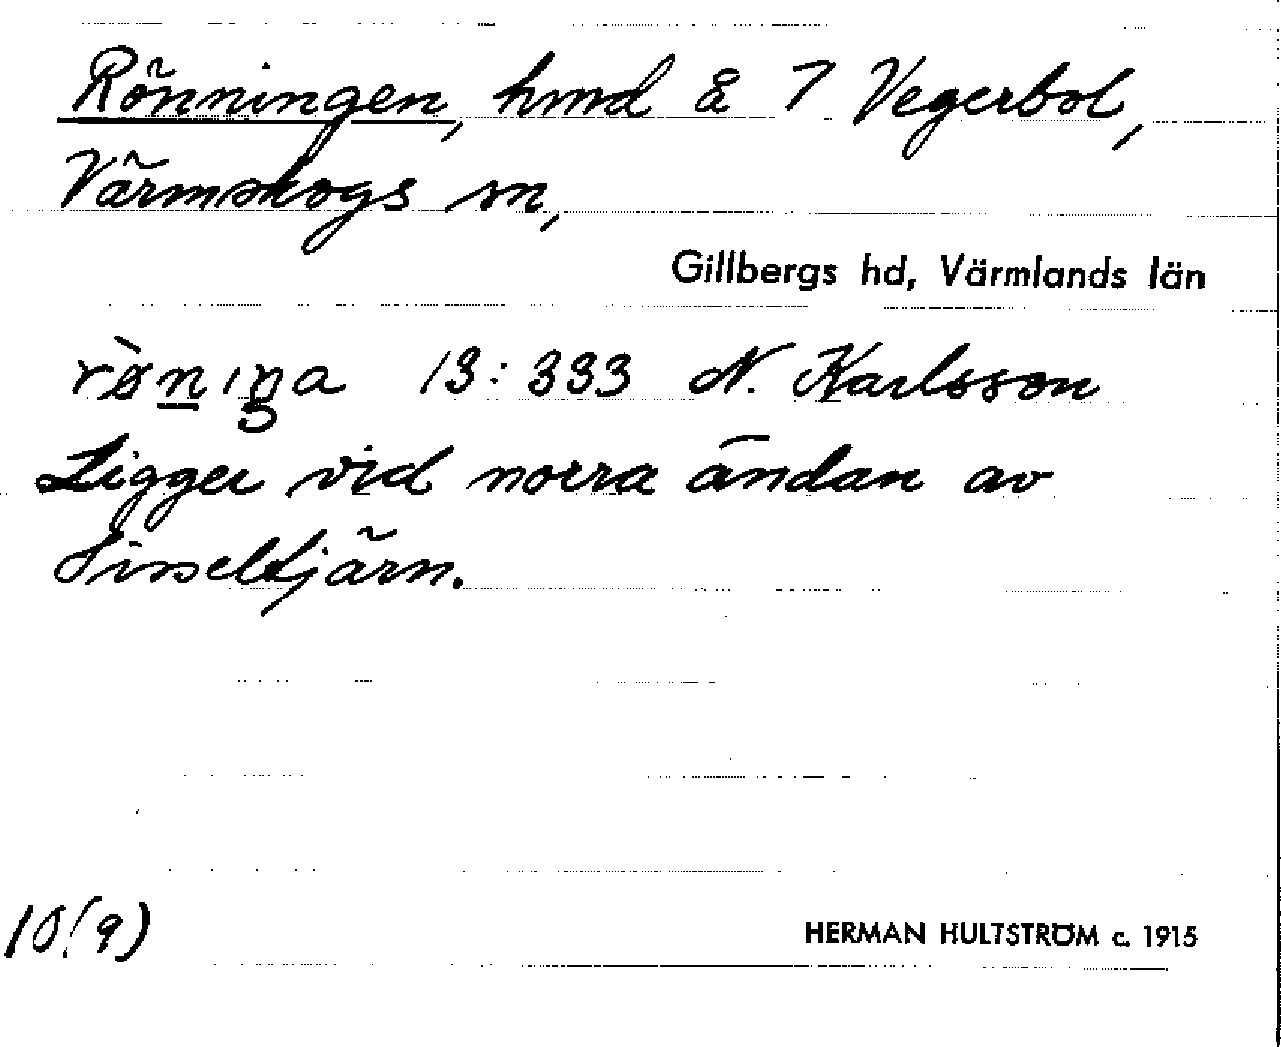 Rönningen, hmd å 7 Vegerbol,
Värmskogs sn,
Gillbergs hd, Värmlands län
rø̀niŋa 13:333 N. Karlsson
Ligger vid norra ändan av
Sisseltjärn.
10(9)
HERMAN HULTSTRÖM c. 1915